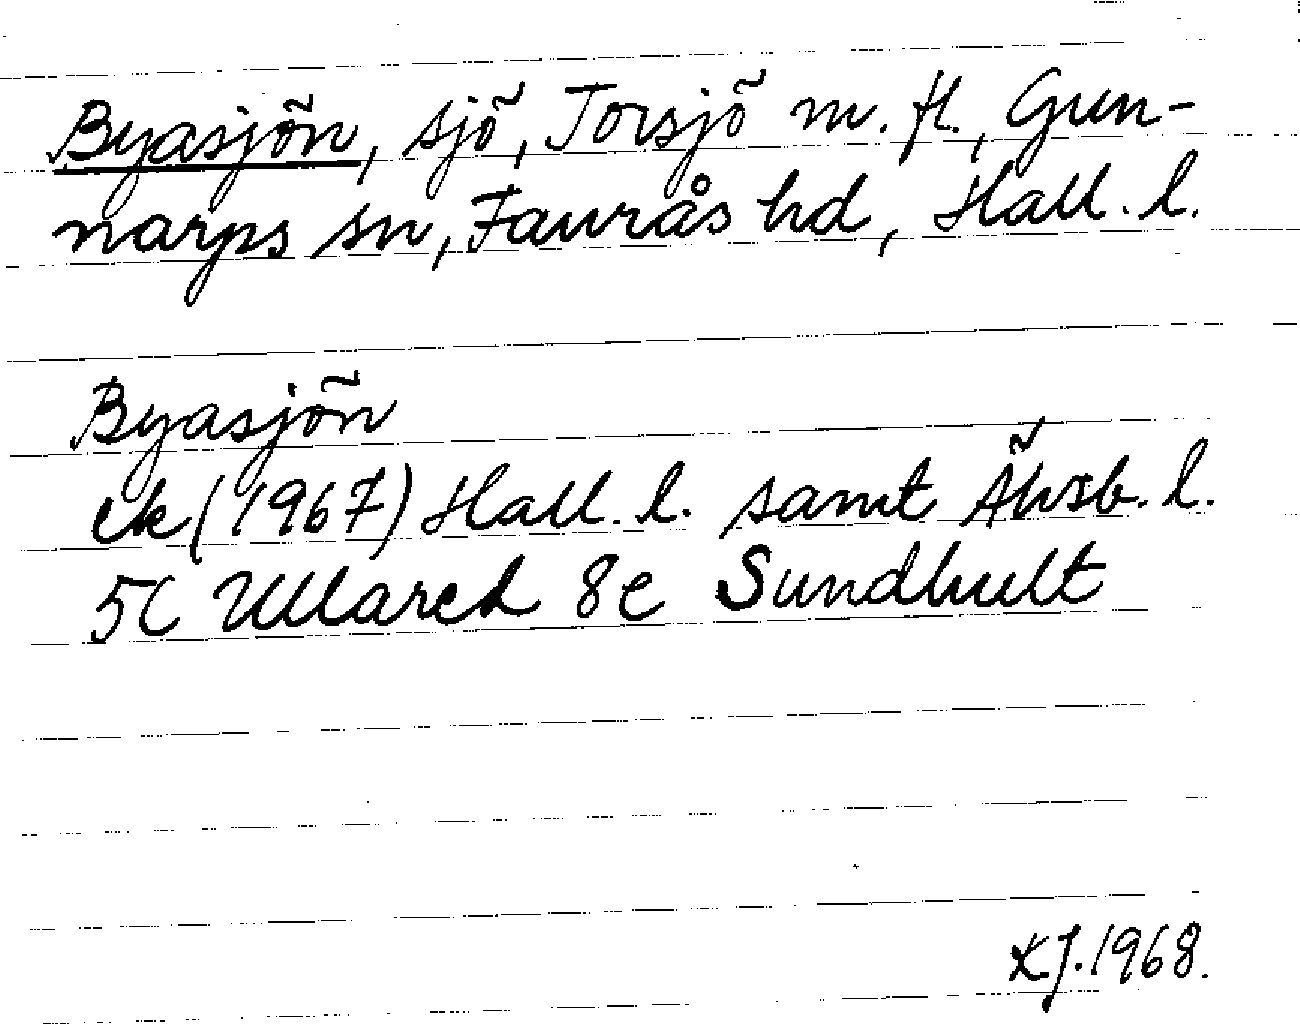 Byasjön, sjö, Torsjö m. fl., Gun-
narps sn, Faurås hd, Hall. l.
Byasjön
ek (1967) Hall. l. samt Älvsb. l.
5C Ullared 8e Sundhult
KJ. 1968.